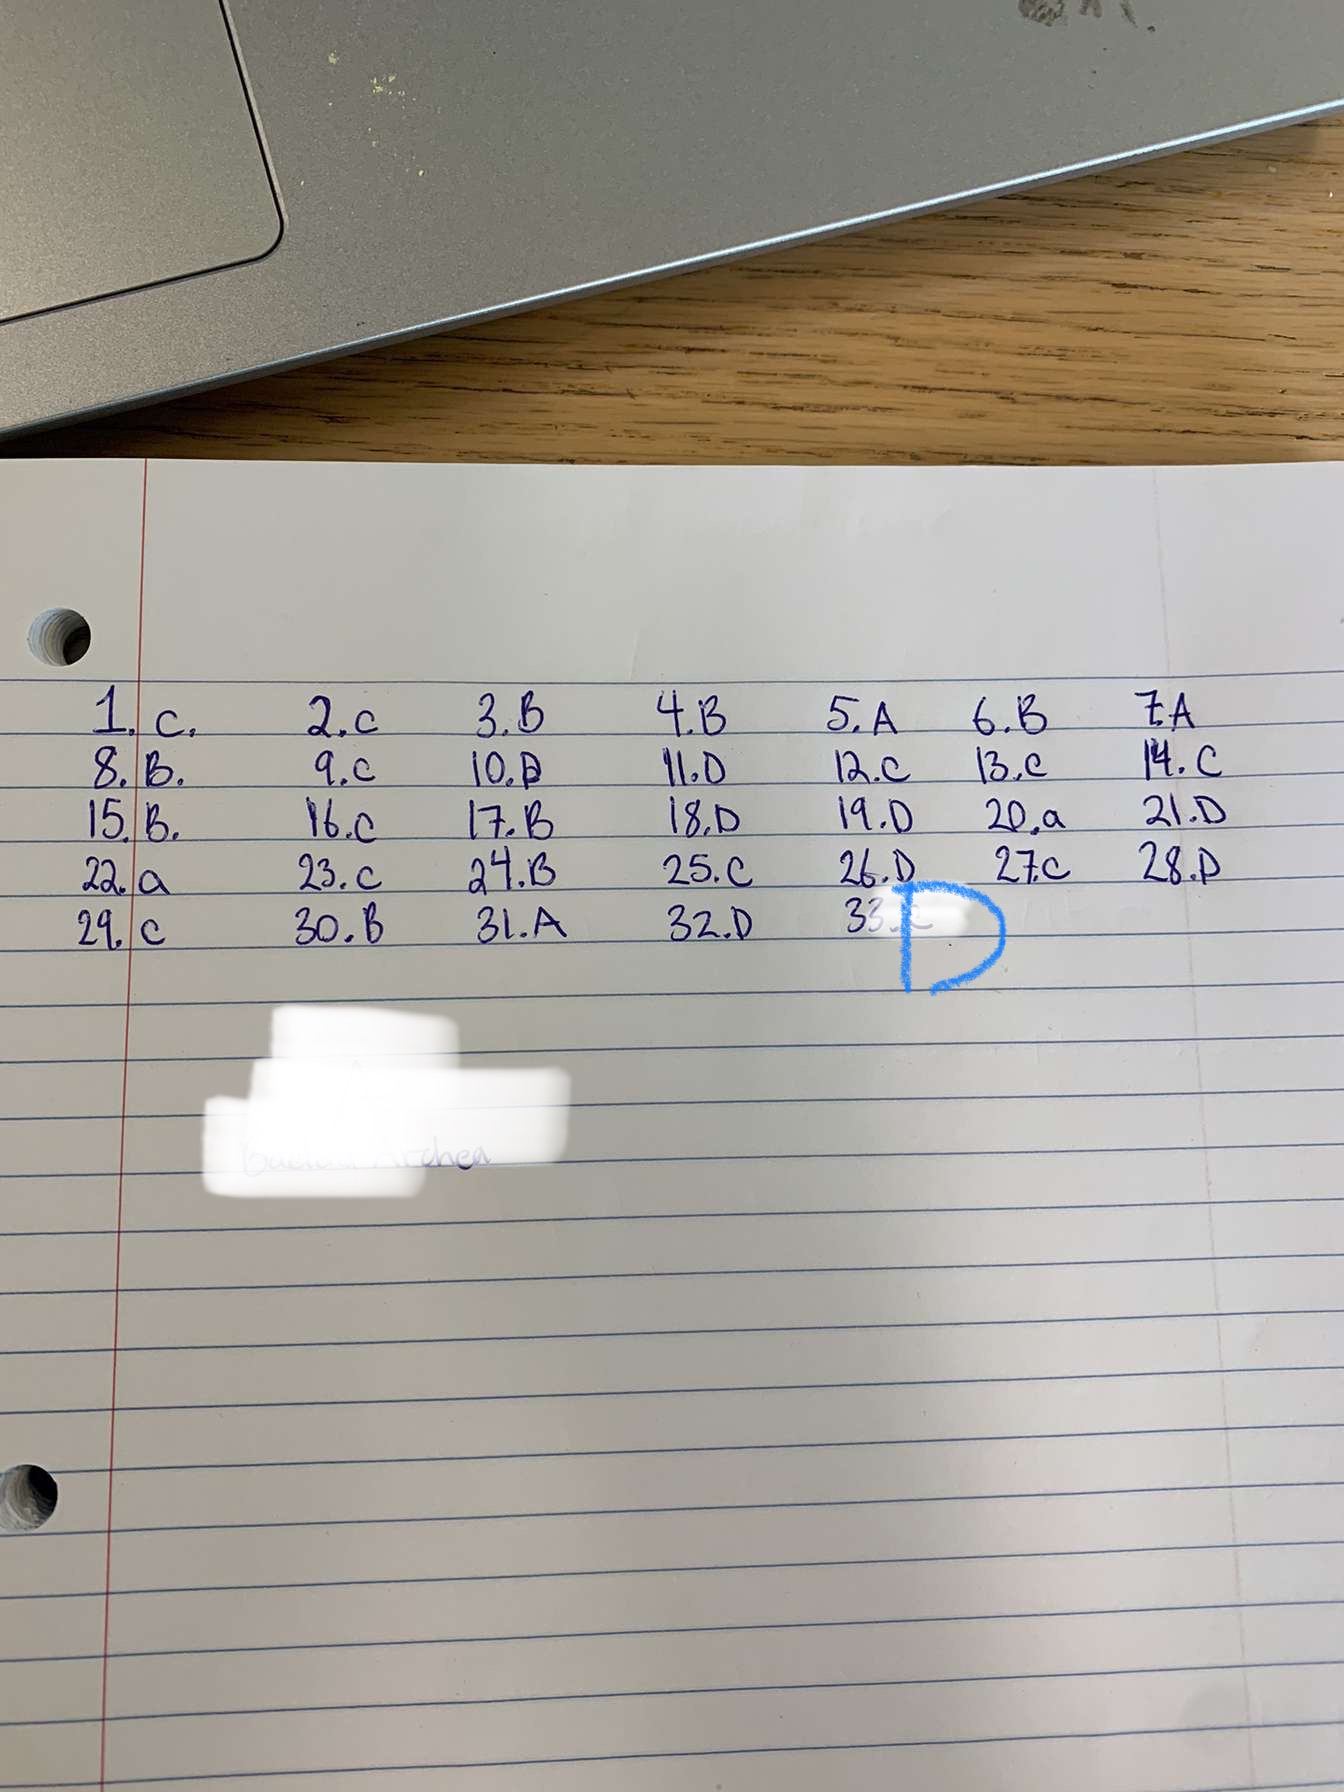 1. C. 2. C 3. B 4. B 5. A 6. B 7. A
8. B. 9. C 10. D 11. D 12. C 13. C 14. C
15. B. 16. C 17. B 18. D 19. D 20. a 21. D
22. a 23. C 24. B 25. C 26. D 27. C 28. D
29. C 30. B 31. A 32. D 33. D
Archea